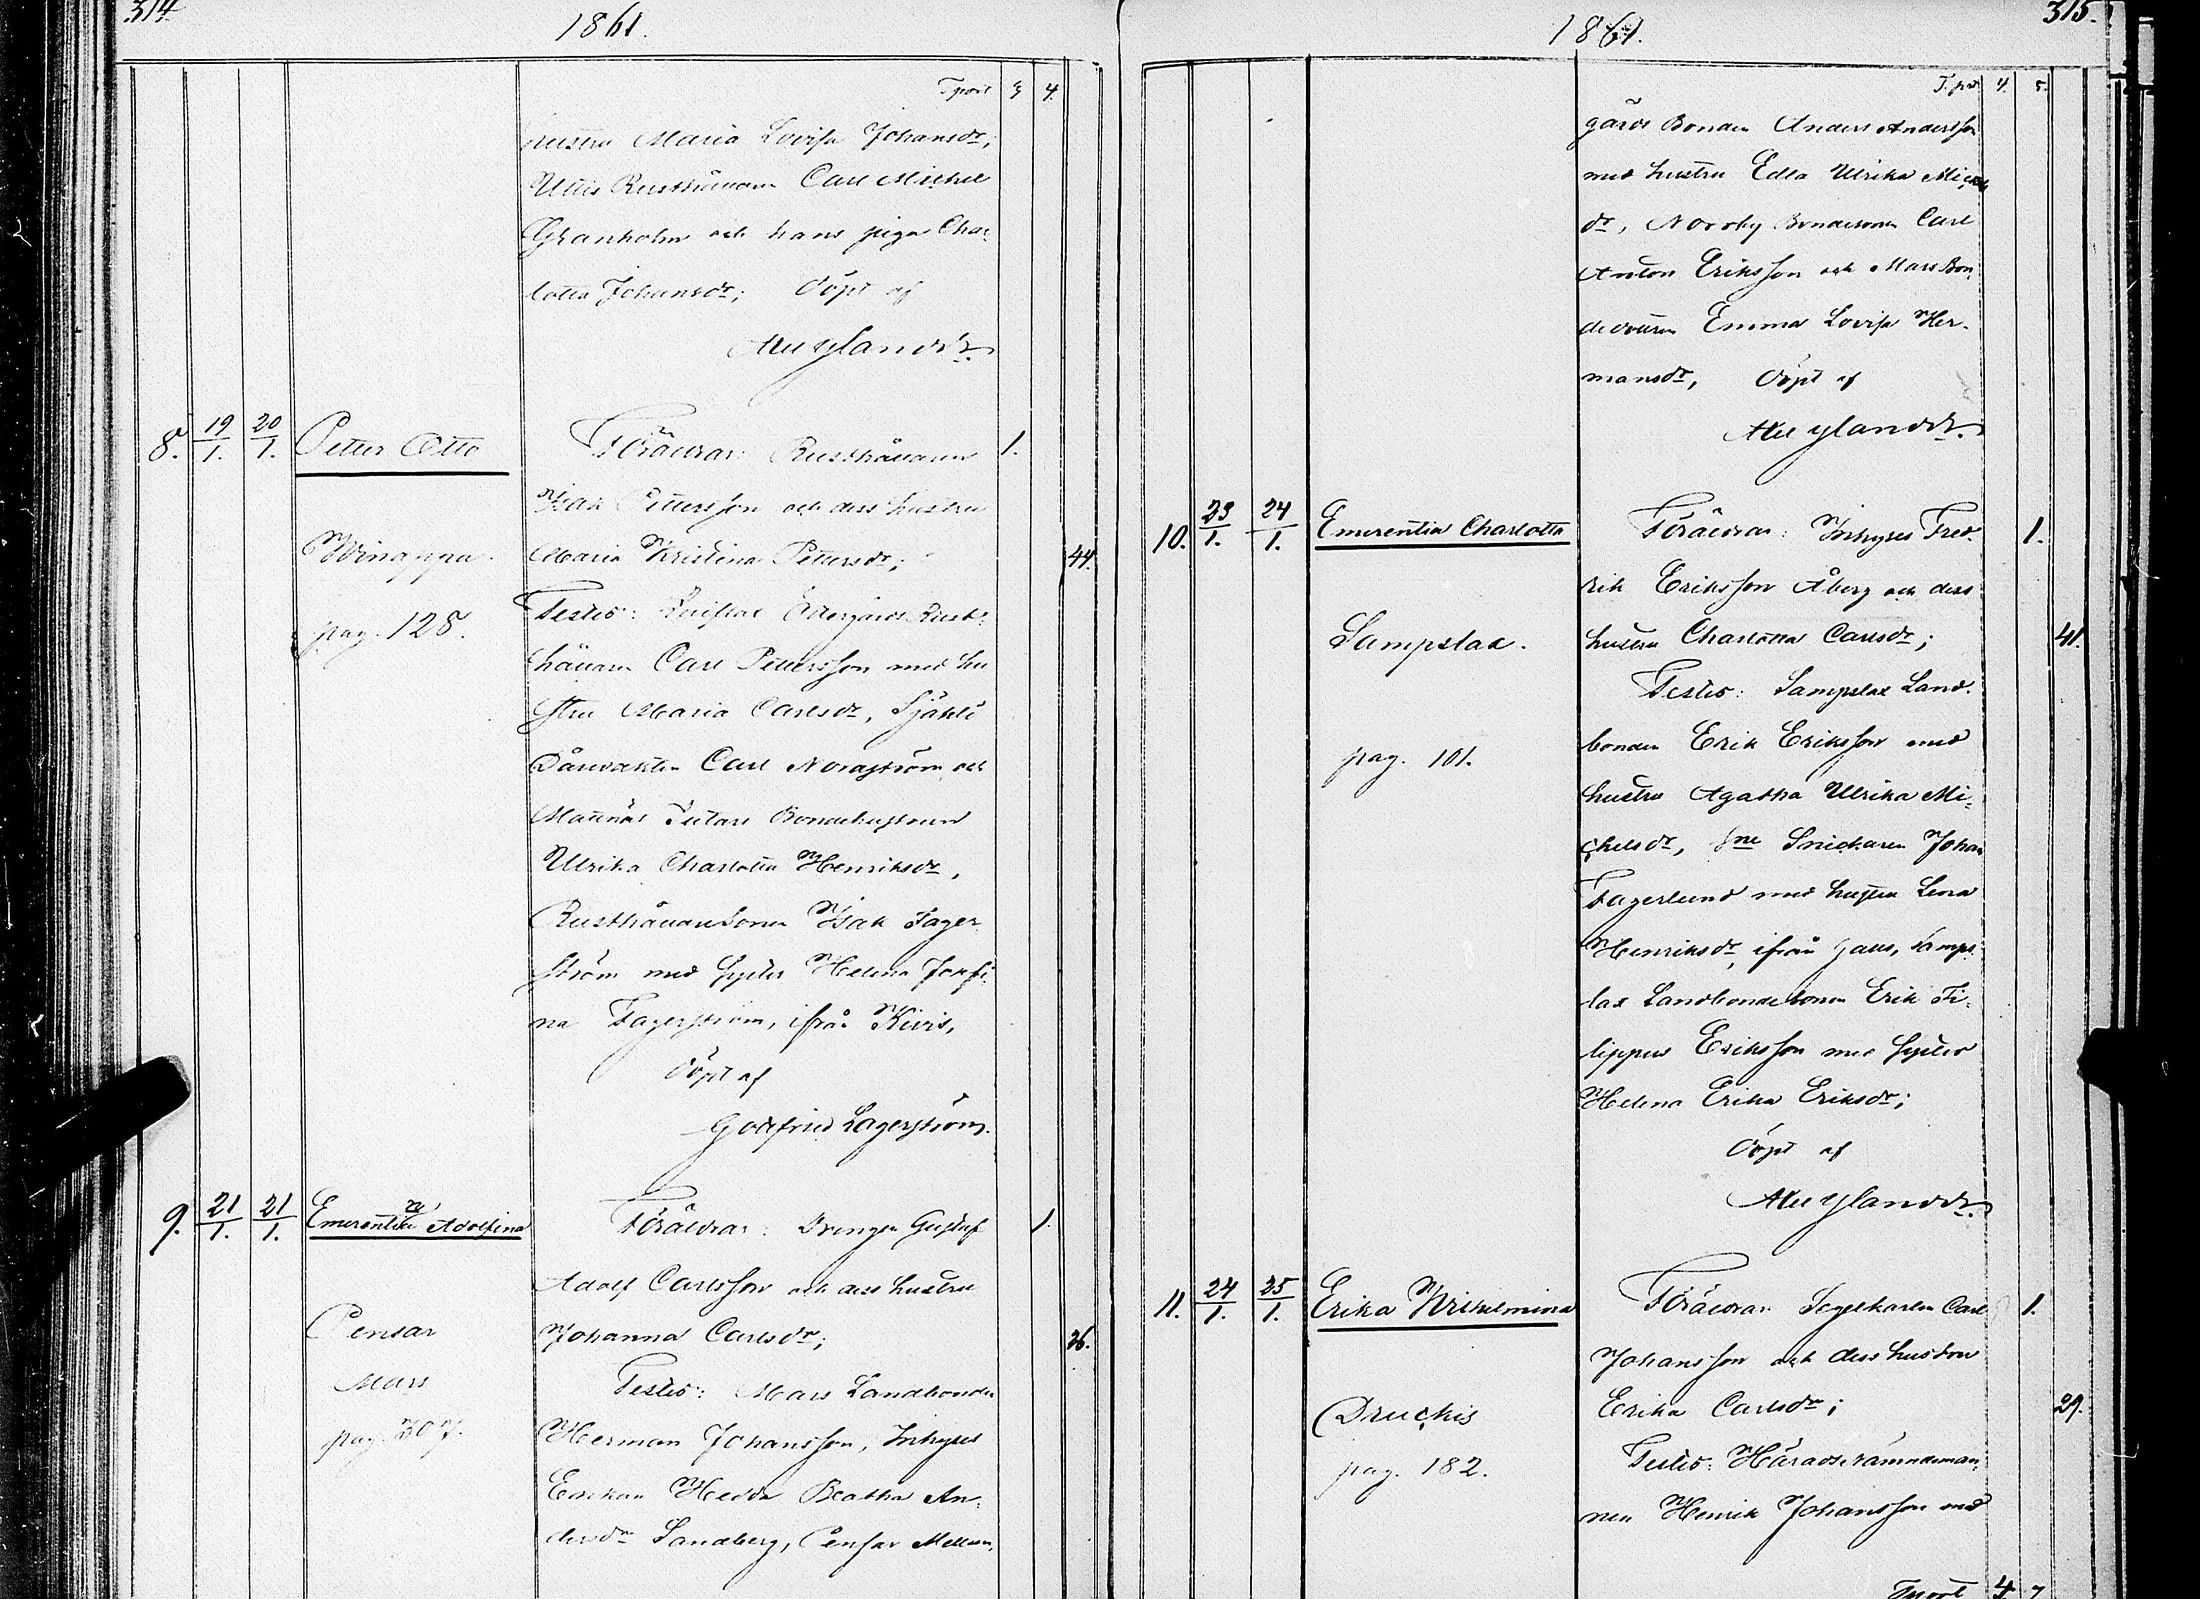 314
1861.
Tport 3 4.
hustru Maria Lovisa Johansdr;
Uttis Rusthållaren Carl Michel
Granholm och hans piga Char-
lotta Johansdr; Döpt af
Nylander
8. 19/1. 20/1. Petter Otto Föräldrar: Rusthållaren 1.
Isak Pettersson och dess hustru
Winappa. Maria Kristina Pettersdr; 44.
pag. 128. Testes: Rust-
hållaren Carl Pettersson med hu
stru Maria Carlsdr, Själö
Dårvakten Carl Nordström och
Bondehustrun
Ulrika Charlotta Henriksdr,
Rusthållaresonen Isak Fager
ström med syster Helena Josefi-
na Fagerström, ifrån Kivis,
Döpt af
Gottfried Lagerström.
9. 21/1. 21/1. Emerentia Adolfina Föräldrar: Drengen Gustaf 1.
Adolf Carlsson och dess hustru
Pensar Johanna Carlsdr; 26.
Mars Testes: Mars Landbonden
pag. 307. Herman Johansson, Inhyses
Enkan Hedda Beatha An-
dersdr Sandberg, Pensar Mellan-
315.
1861.
T.port 4. 5.
gårds Bonden Anders Andersson
med hustru Edla Ulrika Michels
dr, Norrby Bondesonen Carl
Anton Eriksson och Mars Bon-
dedottren Emma Lovisa Her-
mansdr, Döpt af
Nylander.
10. 23/1. 24/1. Emerentia Charlotta Föräldrar: Inhyses Fred- 1.
rik Eriksson Åberg och dess
Sampslax. hustru Charlotta Carlsdr; 41.
Testes: Sampslax Land-
pag. 101. bonden Erik Eriksson med
hustru Agatha Ulrika Mi-
chelsdr, Snickaren Johan
Fagerlund med hustru Lena
Henriksdr, ifrån Samps-
lax Landbondesonen Erik Fi-
lippus Eriksson med syster
Helena Erika Eriksdr;
Döpt af
Nylander.
11. 24/1. 25/1. Erika Wilhelmina Föräldrar: Segelkarlen Carl 1.
Johansson och dess hustru
Druckis Erika Carlsdr; 29.
pag. 182. Testes: Häradsnämndeman-
nen Henrik Johansson med
Tport 4. 7